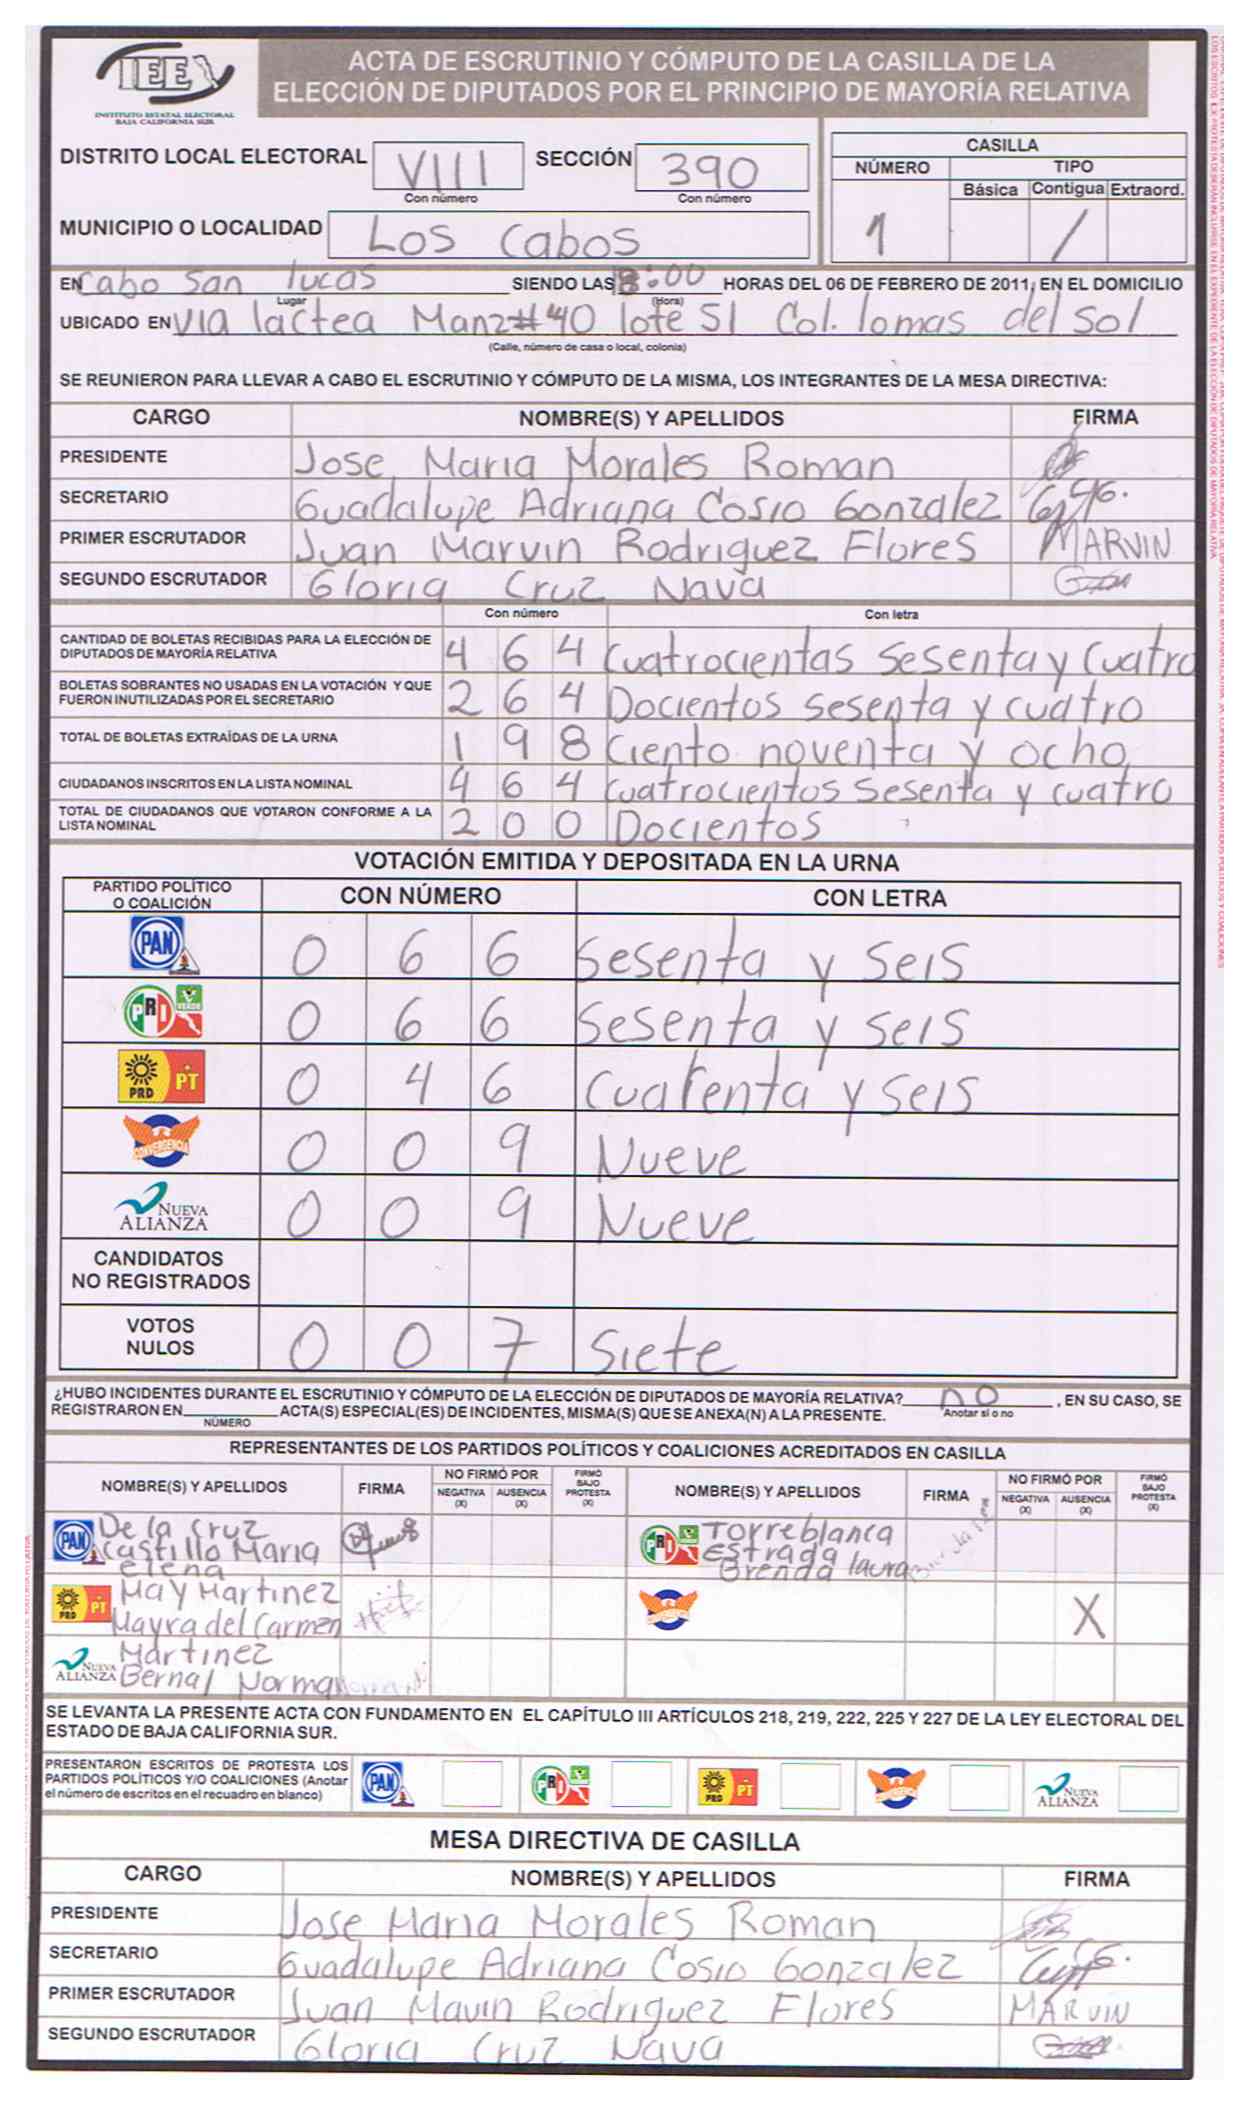 IEE
INSTITUTO ESTATAL ELECTORAL
BAJA CALIFORNIA SUR
ACTA DE ESCRUTINIO Y CÓMPUTO DE LA CASILLA DE LA
ELECCIÓN DE DIPUTADOS POR EL PRINCIPIO DE MAYORÍA RELATIVA
DISTRITO LOCAL ELECTORAL VIII SECCIÓN 390
Con número Con número
CASILLA
NÚMERO TIPO
Básica Contigua Extraord.
1 /
MUNICIPIO O LOCALIDAD Los Cabos
EN Cabo San lucas SIENDO LAS 8:00 HORAS DEL 06 DE FEBRERO DE 2011, EN EL DOMICILIO
Lugar (Hora)
UBICADO EN Via lactea Manz#40 lote 51 Col. lomas del sol
(Calle, número de casa o local, colonia)
SE REUNIERON PARA LLEVAR A CABO EL ESCRUTINIO Y CÓMPUTO DE LA MISMA, LOS INTEGRANTES DE LA MESA DIRECTIVA:
CARGO NOMBRE(S) Y APELLIDOS FIRMA
PRESIDENTE Jose Maria Morales Roman
SECRETARIO Guadalupe Adriana Cosio Gonzalez
PRIMER ESCRUTADOR Juan Marvin Rodriguez Flores MARVIN
SEGUNDO ESCRUTADOR Gloria Cruz Nava
Con número Con letra
CANTIDAD DE BOLETAS RECIBIDAS PARA LA ELECCIÓN DE
DIPUTADOS DE MAYORÍA RELATIVA 4 6 4 Cuatrocientas Sesenta y Cuatro
BOLETAS SOBRANTES NO USADAS EN LA VOTACIÓN Y QUE
FUERON INUTILIZADAS POR EL SECRETARIO 2 6 4 Docientos sesenta y cuatro
TOTAL DE BOLETAS EXTRAÍDAS DE LA URNA 1 9 8 Ciento noventa y ocho
CIUDADANOS INSCRITOS EN LA LISTA NOMINAL 4 6 4 Cuatrocientos Sesenta y cuatro
TOTAL DE CIUDADANOS QUE VOTARON CONFORME A LA
LISTA NOMINAL 2 0 0 Docientos
VOTACIÓN EMITIDA Y DEPOSITADA EN LA URNA
PARTIDO POLÍTICO
O COALICIÓN CON NÚMERO CON LETRA
PAN 0 6 6 Sesenta y seis
PRI VERDE 0 6 6 Sesenta y seis
PRD PT 0 4 6 Cuarenta y seis
CONVERGENCIA 0 0 9 Nueve
NUEVA ALIANZA 0 0 9 Nueve
CANDIDATOS
NO REGISTRADOS
VOTOS
NULOS 0 0 7 Siete
¿HUBO INCIDENTES DURANTE EL ESCRUTINIO Y CÓMPUTO DE LA ELECCIÓN DE DIPUTADOS DE MAYORÍA RELATIVA? no , EN SU CASO, SE
REGISTRARON EN ACTA(S) ESPECIAL(ES) DE INCIDENTES, MISMA(S) QUE SE ANEXA(N) A LA PRESENTE. Anotar si o no
NÚMERO
REPRESENTANTES DE LOS PARTIDOS POLÍTICOS Y COALICIONES ACREDITADOS EN CASILLA
NOMBRE(S) Y APELLIDOS FIRMA NO FIRMÓ POR NEGATIVA (X) AUSENCIA (X) FIRMÓ BAJO PROTESTA (X) NOMBRE(S) Y APELLIDOS FIRMA NO FIRMÓ POR NEGATIVA (X) AUSENCIA (X) FIRMÓ BAJO PROTESTA (X)
PAN De la Cruz
Castillo Maria
elena
PRI VERDE Torreblanca
Estrada
Brenda laura
PRD PT May Martinez
Mayra del Carmen
X
NUEVA ALIANZA Martinez
Bernal Norma
SE LEVANTA LA PRESENTE ACTA CON FUNDAMENTO EN EL CAPÍTULO III ARTÍCULOS 218, 219, 222, 225 Y 227 DE LA LEY ELECTORAL DEL
ESTADO DE BAJA CALIFORNIA SUR.
PRESENTARON ESCRITOS DE PROTESTA LOS
PARTIDOS POLÍTICOS Y/O COALICIONES (Anotar
el número de escritos en el recuadro en blanco)
PAN PRI VERDE PRD PT NUEVA ALIANZA
MESA DIRECTIVA DE CASILLA
CARGO NOMBRE(S) Y APELLIDOS FIRMA
PRESIDENTE Jose Maria Morales Roman
SECRETARIO Guadalupe Adriana Cosio Gonzalez
PRIMER ESCRUTADOR Juan Mavin Rodriguez Flores MARVIN
SEGUNDO ESCRUTADOR Gloria Cruz Nava